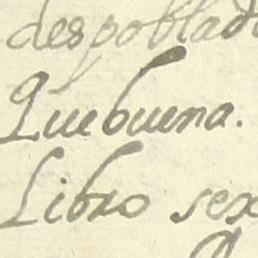 despoblad
Quebuena.
Libro sex